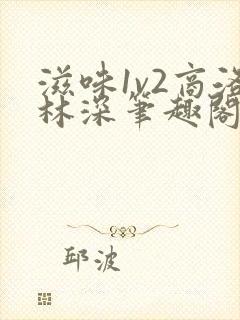 滋味1v2高洛
林深笔趣阁
邱波